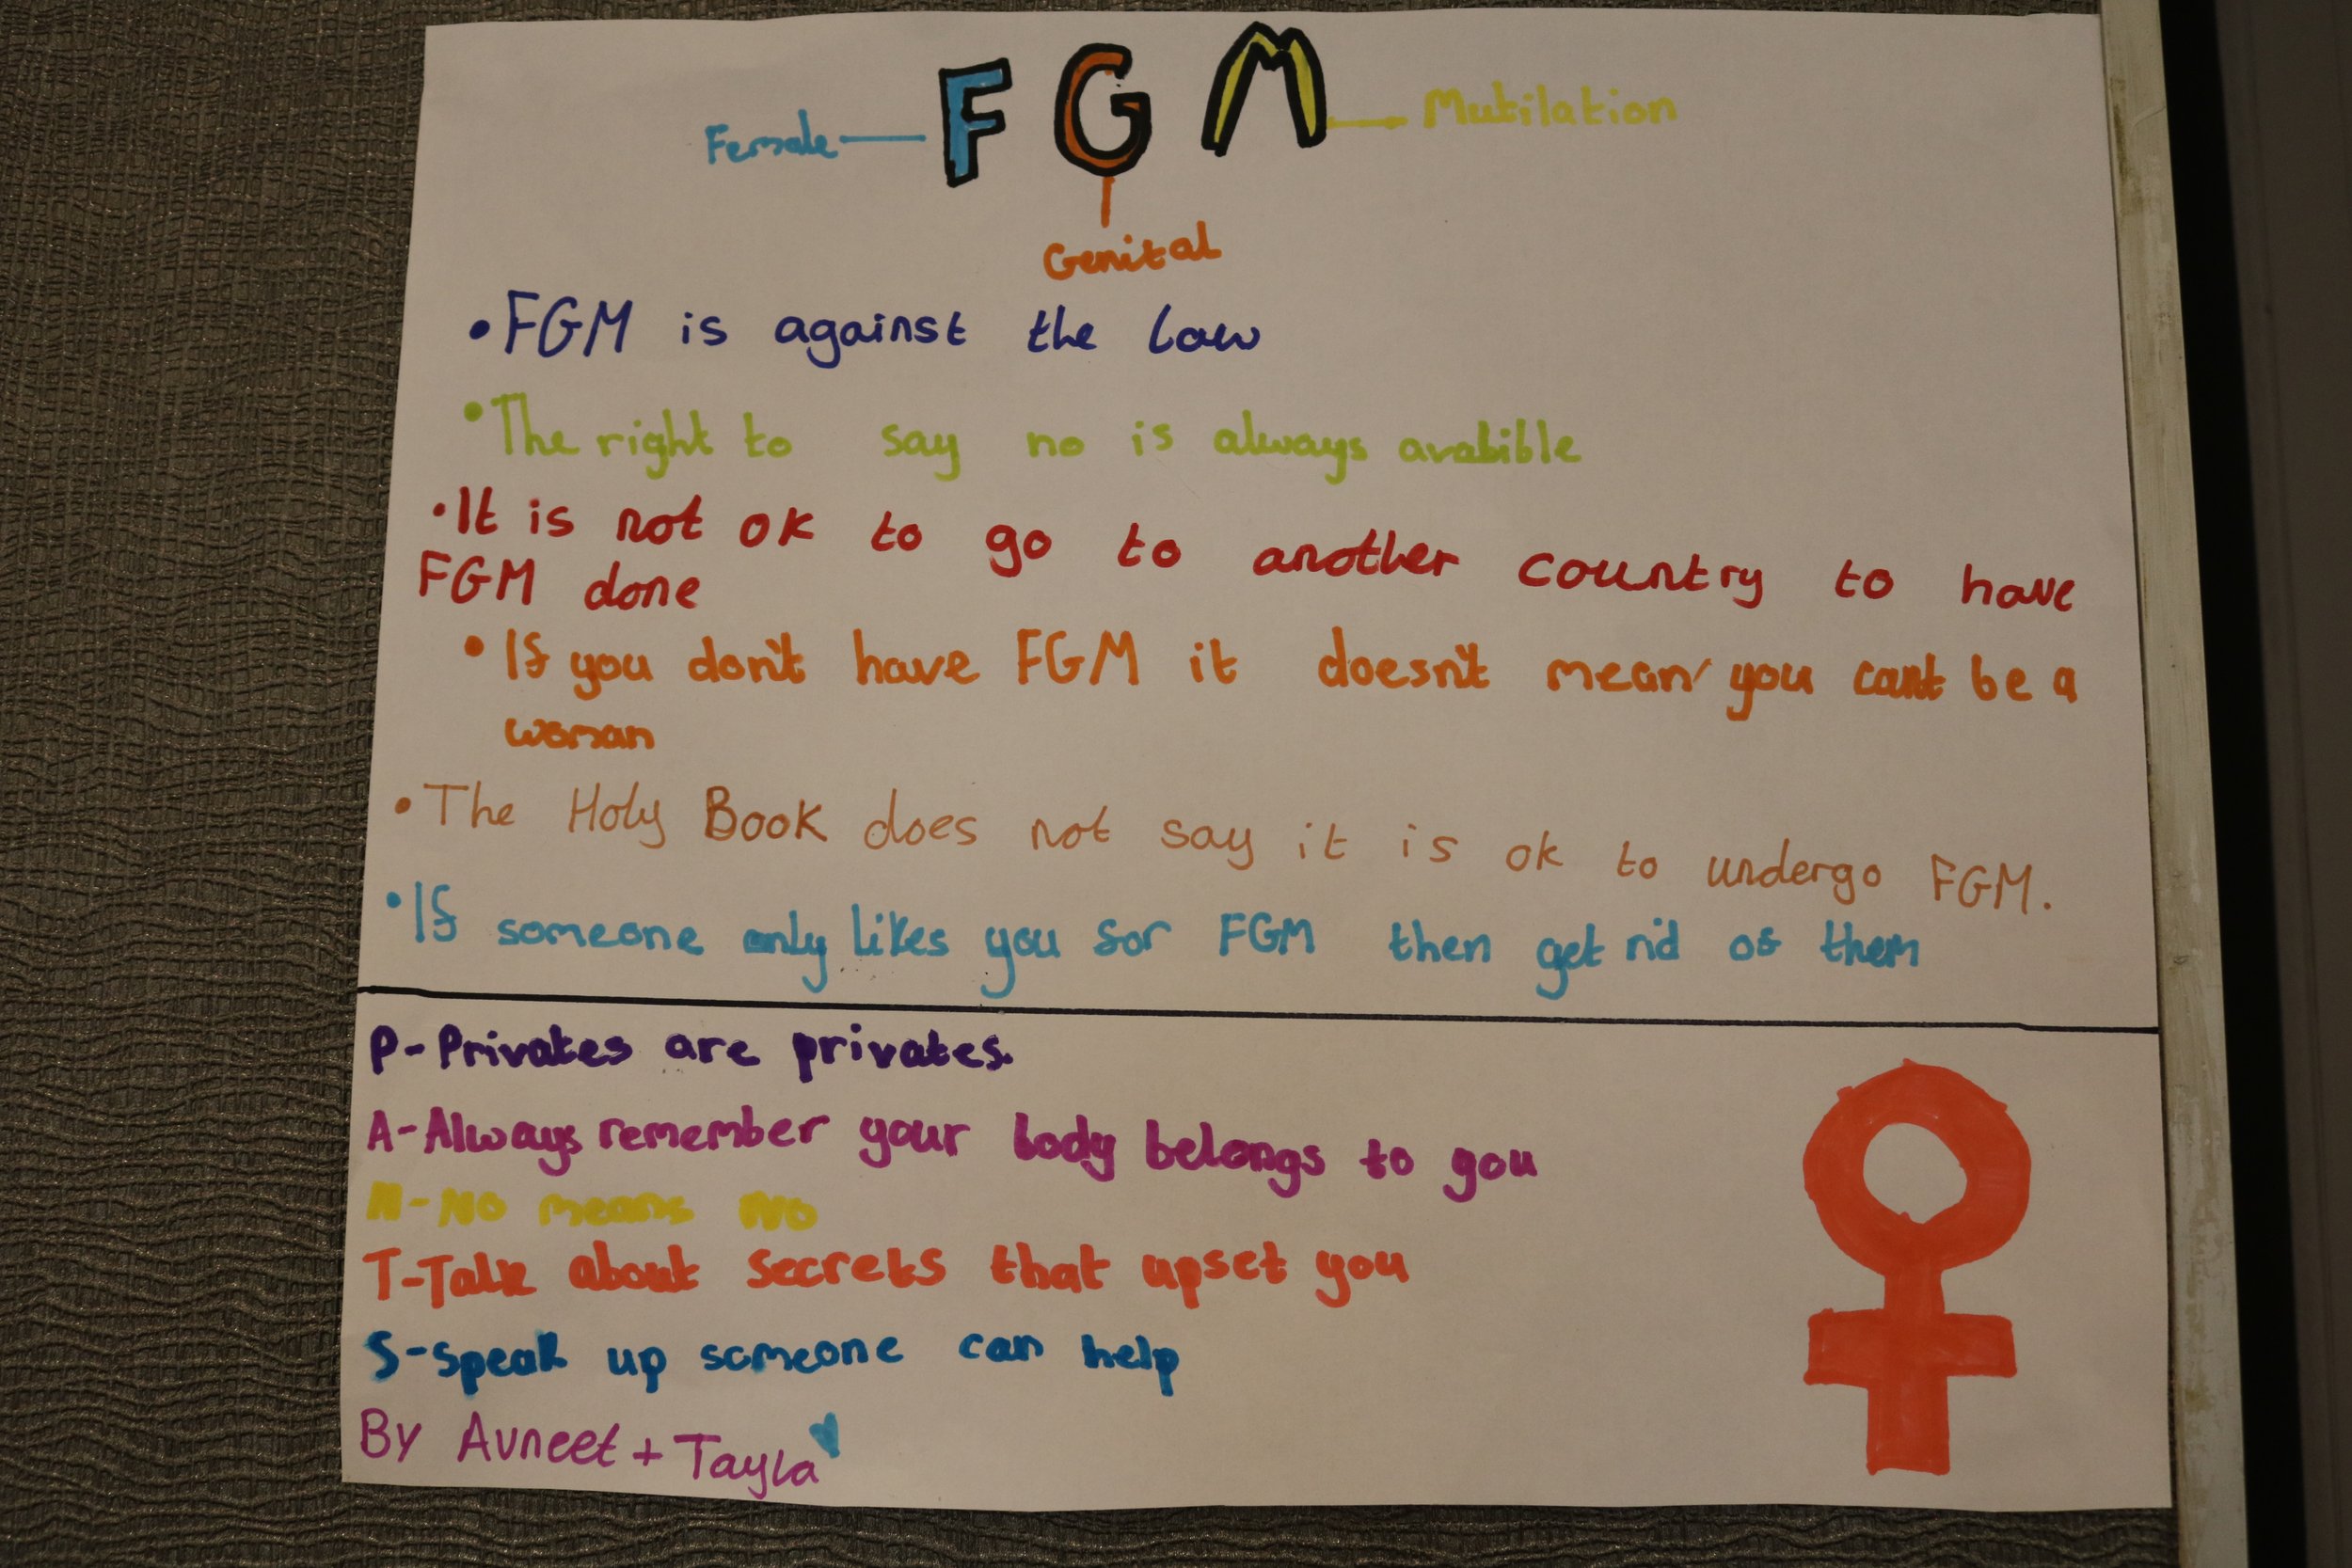 FGM
Female
Mutilation
Genital
• FGM is against the law
• The right to say no is always avabible
• It is not ok to go to another country to have
FGM done
• If you don't have FGM it doesn't mean you can't be a
woman
• The Holy Book does not say it is ok to undergo FGM.
• If someone only likes you for FGM then get rid of them
P-Privates are privates.
A-Always remember your body belongs to you
N-No means No
T-Talk about secrets that upset you
S-Speak up someone can help
By Avneet + Tayla